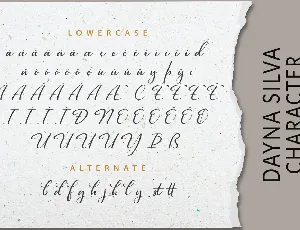 LOWERCASE
à á â ã ä å æ c è é ê ë ì í î ï ð
ñ ò ó ô õ ö ù ú û ü ý þ ÿ
À Á Â Ã Ä Å Æ Ç È É Ê Ë
Ì Í Î Ï Ð Ñ Ò Ó Ô Õ Ö
Ù Ú Û Ü Ý Þ ß
ALTERNATE
b d f g h j k l y tt
DAYNA SILVA
CHARACTER